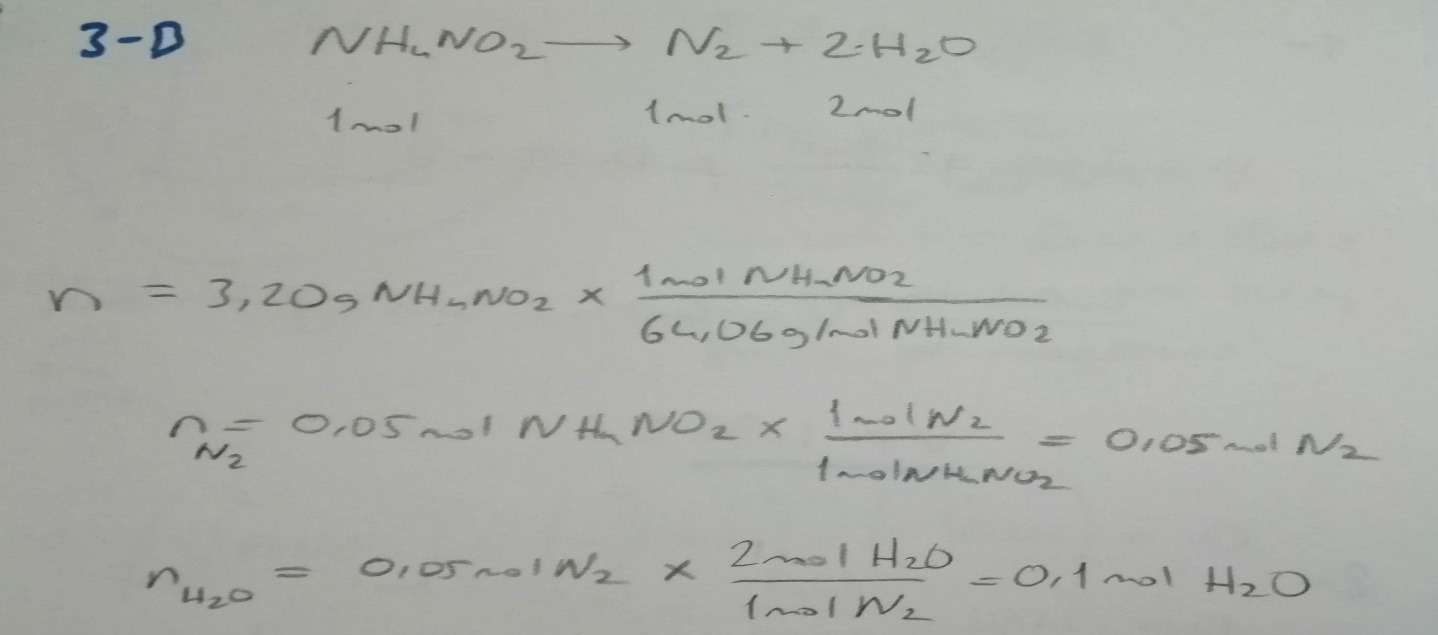 3-D NH₄NO₂ → N₂ + 2·H₂O
1mol 1mol. 2mol
n = 3,20g NH₄NO₂ × 1mol NH₄NO₂
64,06g/mol NH₄NO₂
n N₂ = 0,05mol NH₄NO₂ × 1mol N₂ = 0,05mol N₂
1mol NH₄NO₂
n H₂O = 0,05mol N₂ × 2mol H₂O = 0,1mol H₂O
1mol N₂